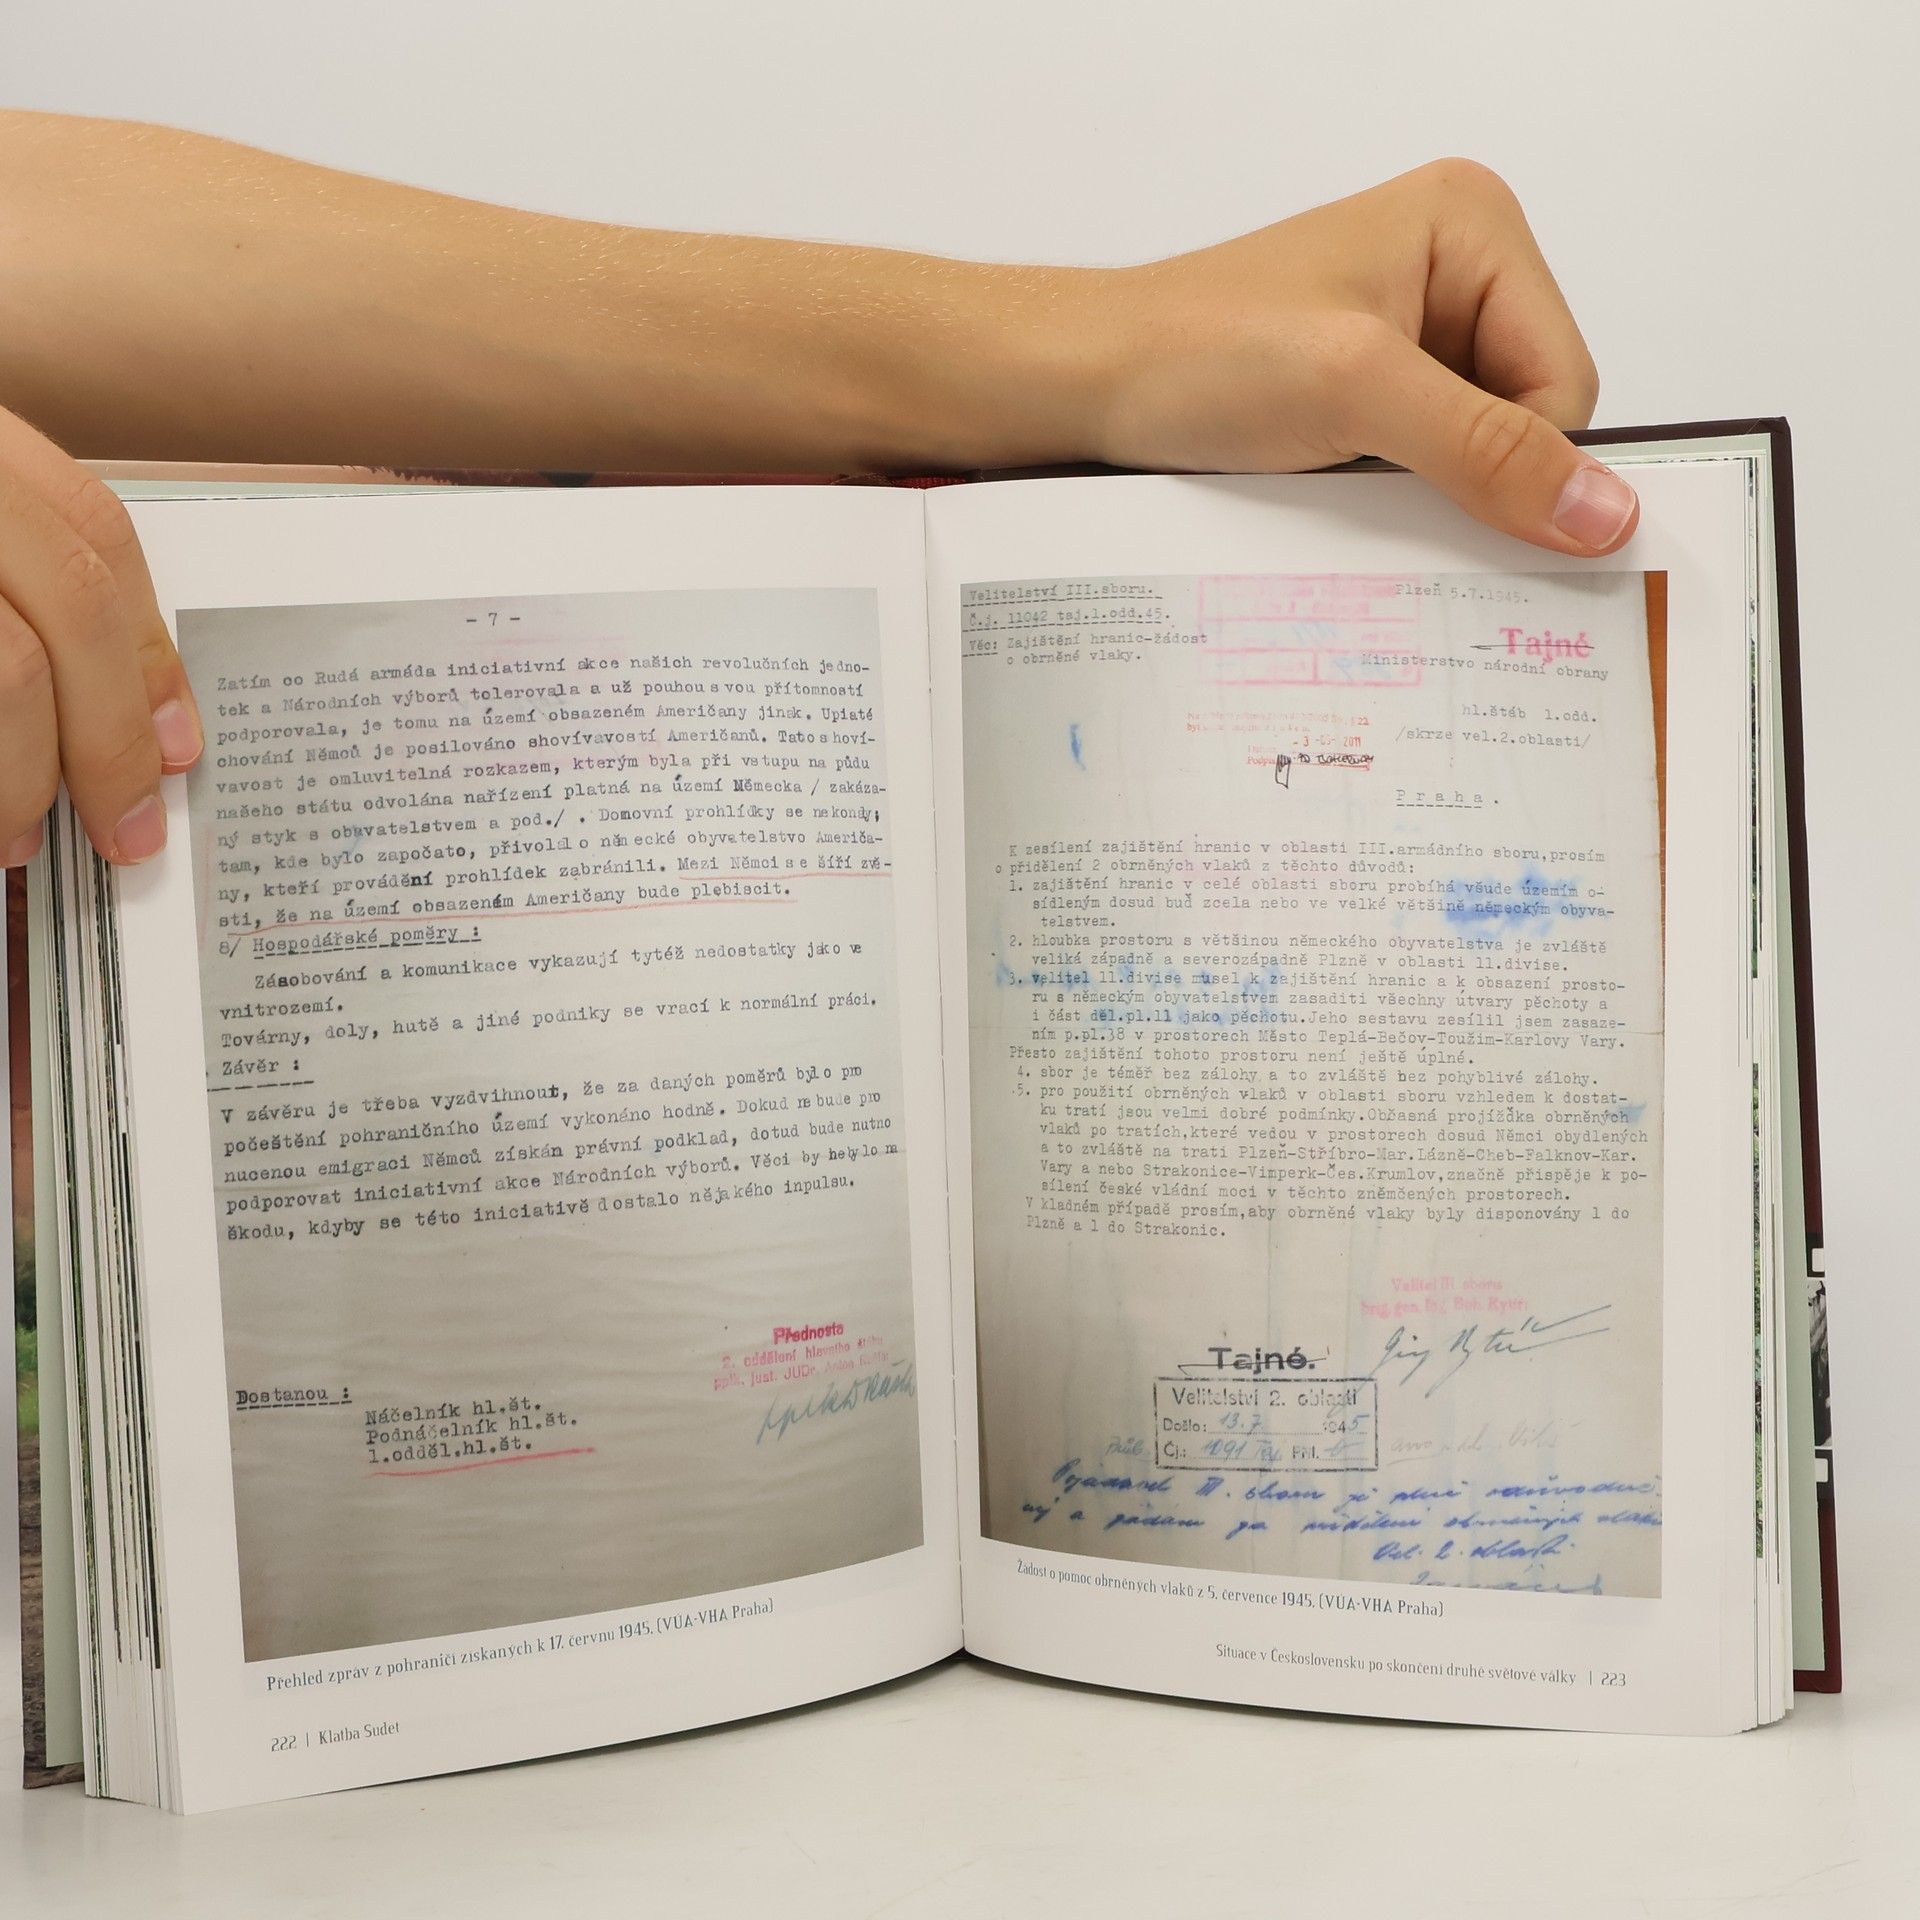 - 7 -
Zatím co Rudá armáda iniciativní akce našich revolučních jedno-
tek a Národních výborů tolerovala a už pouhou svou přítomností
podporovala, je tomu na území obsazeném Američany jinak. Upiaté
chování Němců je posilováno shovívavostí Američanů. Tato shoví-
vavost je omluvitelná rozkazem, kterým byla při vstupu na půdu
našeho státu odvolána nařízení platná na území Německa / zakáza-
ný styk s obavatelstvem a pod./ . Domovní prohlídky se nekondy;
tam, kde bylo započato, přivolalo německé obyvatelstvo America-
ny, kteří provádění prohlídek zabránili. Mezi Němci se šíří zvě-
sti, že na území obsazeném Američany bude plebiscit.
8/ Hospodářské poměry :
Zásobování a komunikace vykazují tytéž nedostatky jako ve
vnitrozemí.
Továrny, doly, hutě a jiné podniky se vrací k normální práci.
Závěr :
V závěru je třeba vyzdvihnout, že za daných poměrů bylo pro
počeštění pohraničního území vykonáno hodně. Dokud nebude pro
nucenou emigraci Němců získán právní podklad, dotud bude nutno
podporovat iniciativní akce Národních výborů. Věci by nebylo na
škodu, kdyby se této iniciativě dostalo nějakého inpulsu.
Přednosta
2. oddělení hlavního
pplk. just. JUDr.
Dostanou :
Náčelník hl.št.
Podnáčelník hl.št.
1.odděl.hl.št.
Přehled zpráv z pohraničí získaných k 17. červnu 1945. (VÚA-VHA Praha)
222 | Klatba Sudet
Velitelství III.sboru.
Č.j. 11042 taj.1.odd.45.
Věc: Zajištění hranic-žádost
o obrněné vlaky.
Plzeň 5.7.1945.
Tajné
Ministerstvo národní obrany
hl.štáb 1.odd.
/skrze vel.2.oblasti/
- 3 -03- 2011
Praha.
K zesílení zajištění hranic v oblasti III.armádního sboru,prosím
o přidělení 2 obrněných vlaků z těchto důvodů:
1. zajištění hranic v celé oblasti sboru probíhá všude územím o-
sídleným dosud buď zcela nebo ve velké většině německým obyva-
telstvem.
2. hloubka prostoru s většinou německého obyvatelstva je zvláště
veliká západně a severozápadně Plzně v oblasti 11.divise.
3. velitel 11.divise musel k zajištění hranic a k obsazení prosto-
ru s německým obyvatelstvem zasaditi všechny útvary pěchoty a
i část děl.pl.11 jako pěchotu.Jeho sestavu zesílil jsem zasaze-
ním p.pl.38 v prostorech Město Teplá-Bečov-Toužim-Karlovy Vary.
Přesto zajištění tohoto prostoru není ještě úplné.
4. sbor je téměř bez zálohy a to zvláště bez pohyblivé zálohy.
5. pro použití obrněných vlaků v oblasti sboru vzhledem k dostat-
ku tratí jsou velmi dobré podmínky.Občasná projížďka obrněných
vlaků po tratích,které vedou v prostorech dosud Němci obydlených
a to zvláště na trati Plzeň-Stříbro-Mar.Lázně-Cheb-Falknov-Kar.
Vary a nebo Strakonice-Vimperk-Čes.Krumlov,značně přispěje k po-
sílení české vládní moci v těchto zněmčených prostorech.
V kladném případě prosím,aby obrněné vlaky byly disponovány 1 do
Plzně a 1 do Strakonic.
Velitel III sboru
brig.gen. Ing
Tajné.
Velitelství 2. oblasti
Došlo: 13.7. 1945
Čj.: 1091 Taj. Příl.
Požadavek III. sboru je plně odůvodně-
ný a žádám za přidělení obrněných vlaků
Vel. 2. oblasti
Žádost o pomoc obrněných vlaků z 5. července 1945. (VÚA-VHA Praha)
Situace v Československu po skončení druhé světové války | 223